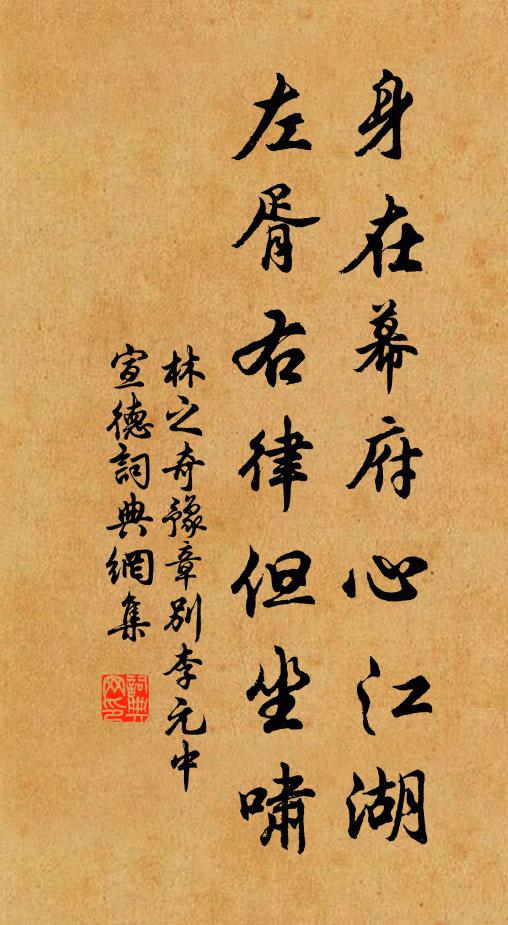 身在幕府心江湖
左胥右律但坐啸
林之奇豫章别李元中
宣德詞典網集
詞典网印